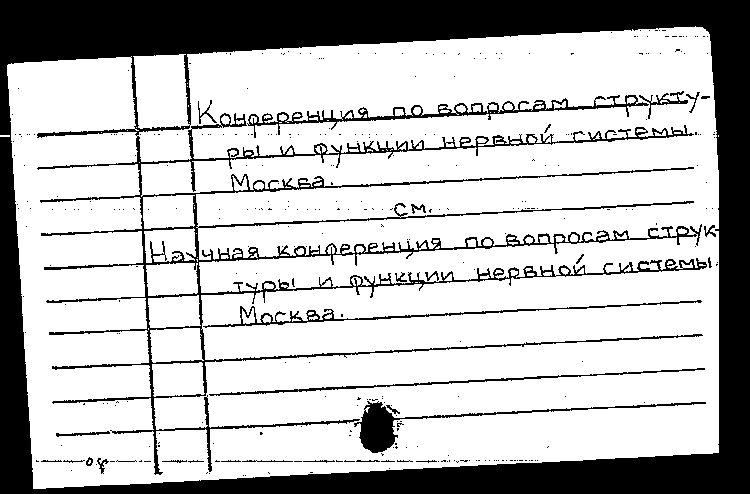 Конференция по вопросам структу-
ры и функции нервной системы.
Москва.
см.
Научная конференция по вопросам струк-
туры и функции нервной системы.
Москва.